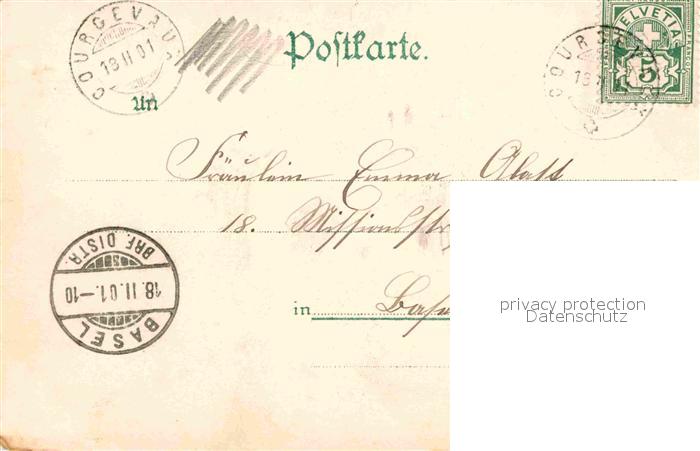 COURGEVAUX
18 II 01
Postkarte.
HELVETIA
5
An
Fräulein Emma Glatt
18. Missionsstr
in Base
BRF. DISTR.
18. II. 01.-10
BASEL
privacy protection
Datenschutz